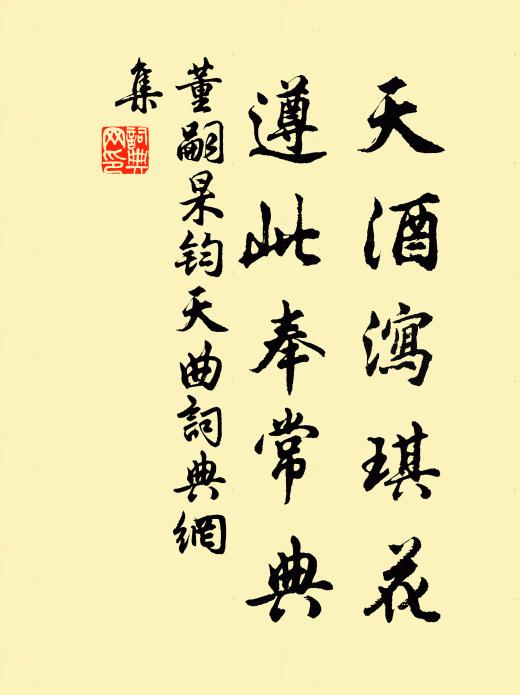 天酒瀉琪花
遵此奉常典
董嗣杲鈞天曲詞典網
集
詞典網印